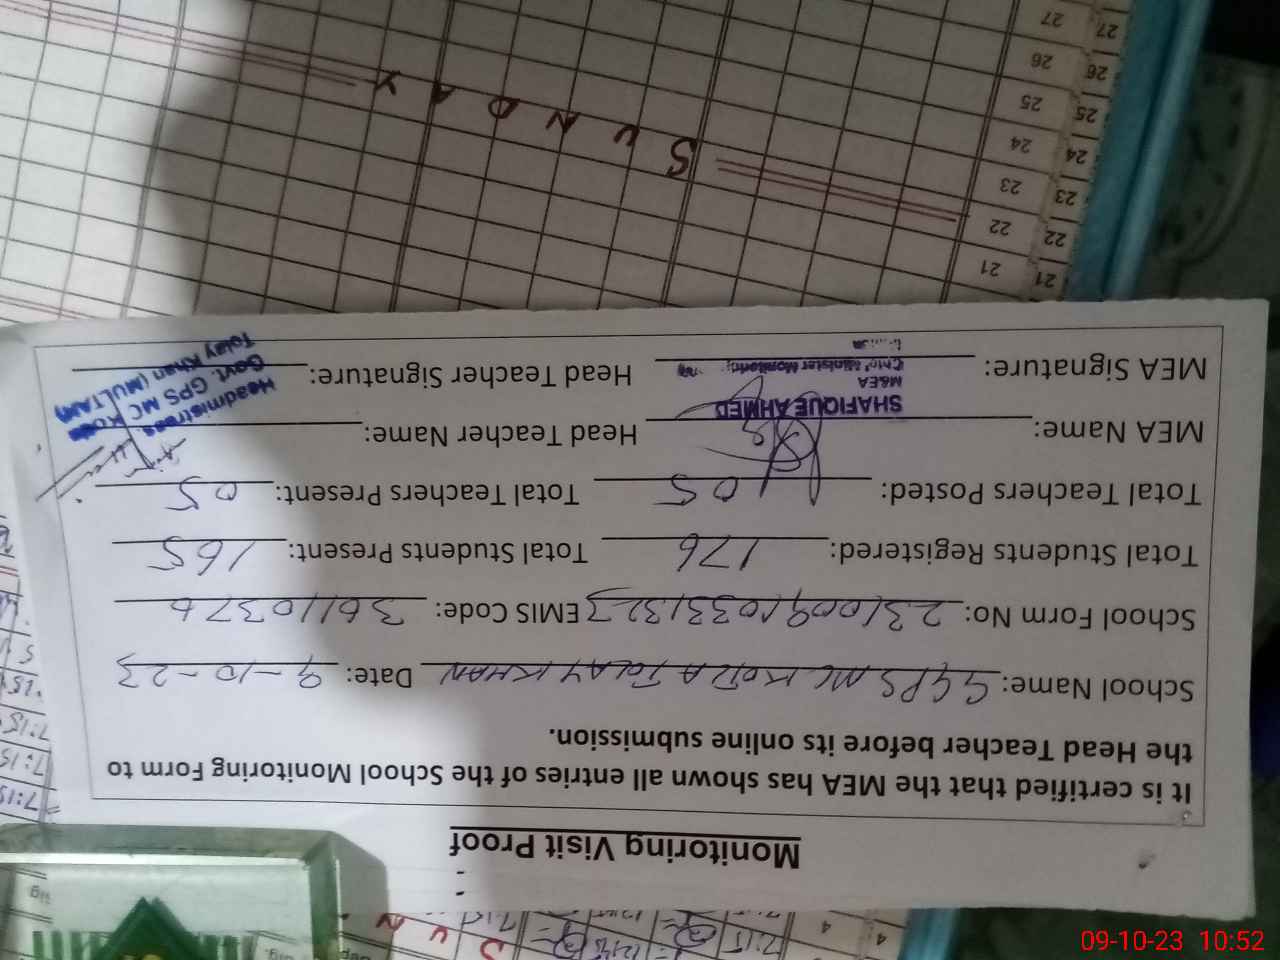 Monitoring Visit Proof
It is certified that the MEA has shown all entries of the School Monitoring Form to
the Head Teacher before its online submission.
School Name: GGPS MC KOTLA TOLAY KHAN Date: 9-10-23
School Form No: EMIS Code: 36110376
Total Students Registered: 176 Total Students Present: 165
Total Teachers Posted: 05 Total Teachers Present: 05
MEA Name: Head Teacher Name:
SHAFIQUE AHMED
M&EA
MEA Signature: Head Teacher Signature:
Headmistress
Govt. GPS MC
Tolay Khan (MULTAN)
21 21
22 22
23 23
24 24
25 25
26 26
27 27
SUNDAY
4 4
7:15
7:15
7:15
09-10-23 10:52